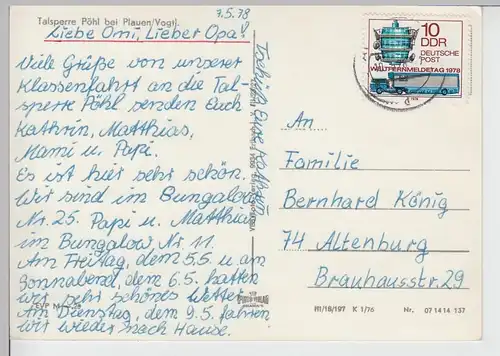 Talsperre Pöhl bei Plauen/Vogtl.
7.5.78
Liebe Omi, Lieber Opa!
Viele Grüße von unserer
Klassenfahrt an die Tal-
sperre Pöhl senden Euch
Kathrin, Matthias,
Mami u. Papi.
Es ist hier sehr schön.
Wir sind im Bungalow
Nr. 25. Papi u. Matthias
im Bungalow Nr. 11.
Am Freitag, dem 5.5. u. am
Sonnabend, dem 6.5. hatten
wir sehr schönes Wetter.
Am Dienstag, dem 9.5. fahren
wir wieder nach Hause.
Tschüß Eure Kathrin
10
DDR
DEUTSCHE
POST
WELTFERNMELDETAG 1978
An
Familie
Bernhard König
74 Altenburg
Brauhausstr. 29
III/18/197 K 1/76 Nr. 07 14 14 137
EVP